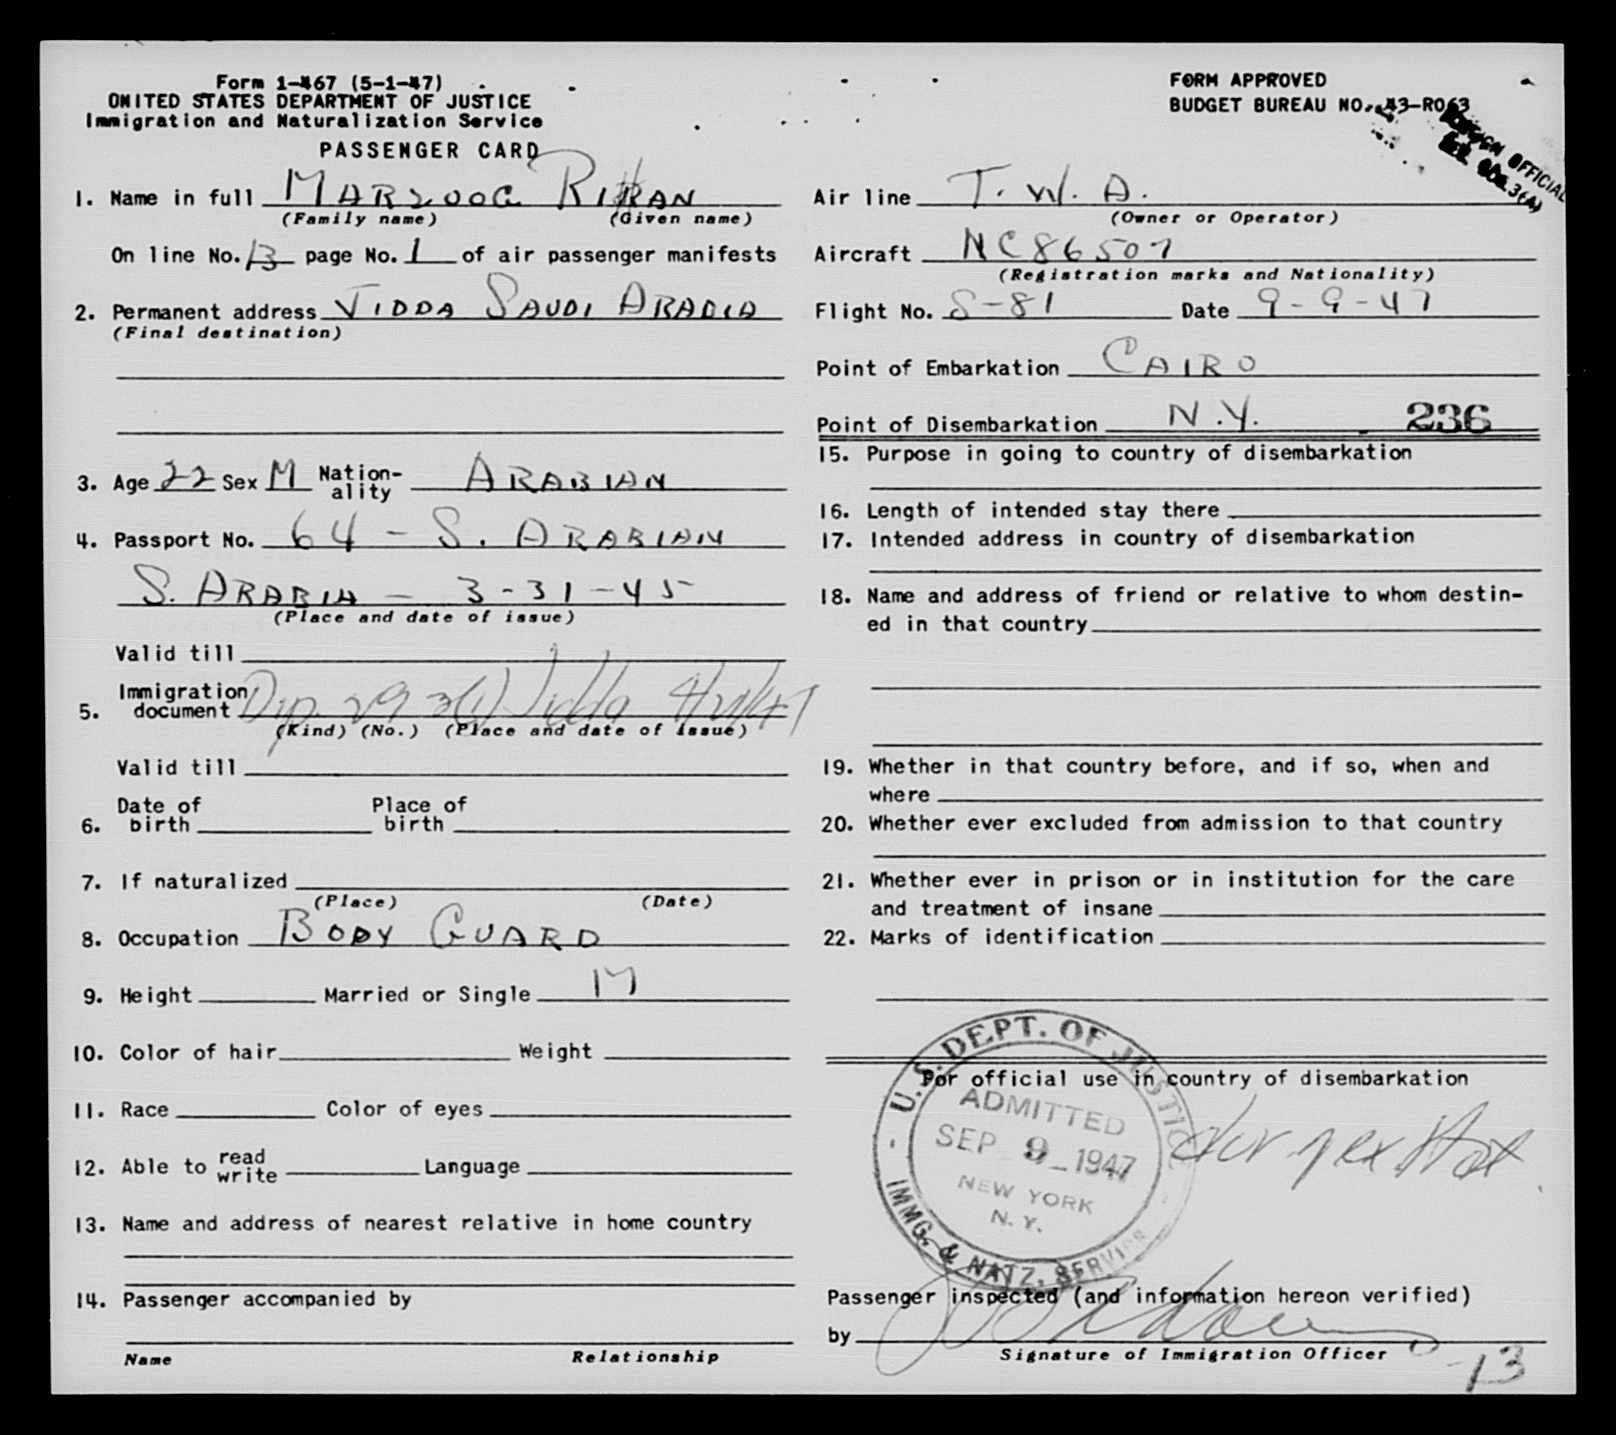 Form 1-467 (5-1-47)
UNITED STATES DEPARTMENT OF JUSTICE
Immigration and Naturalization Service
PASSENGER CARD
FORM APPROVED
BUDGET BUREAU NO. 43-R063
FOREIGN OFFICIAL
SEC. 3(A)
1. Name in full MARZOOG RIHAN
(Family name) (Given name)
On line No. 13 page No. 1 of air passenger manifests
2. Permanent address JIDDA SAUDI ARABIA
(Final destination)
3. Age 22 Sex M Nation-ality ARABIAN
4. Passport No. 64 - S. ARABIAN
S. ARABIA - 3-31-45
(Place and date of issue)
Valid till
5. Immigration document Dip. 29 3(1) Jidda 4/21/47
(Kind) (No.) (Place and date of issue)
Valid till
6. Date of birth Place of birth
7. If naturalized
(Place) (Date)
8. Occupation BODY GUARD
9. Height Married or Single M
10. Color of hair Weight
11. Race Color of eyes
12. Able to read write Language
13. Name and address of nearest relative in home country
14. Passenger accompanied by
Name Relationship
Air line T.W.A.
(Owner or Operator)
Aircraft NC86507
(Registration marks and Nationality)
Flight No. S-81 Date 9-9-47
Point of Embarkation CAIRO
Point of Disembarkation N.Y. 236
15. Purpose in going to country of disembarkation
16. Length of intended stay there
17. Intended address in country of disembarkation
18. Name and address of friend or relative to whom destin-
ed in that country
19. Whether in that country before, and if so, when and
where
20. Whether ever excluded from admission to that country
21. Whether ever in prison or in institution for the care
and treatment of insane
22. Marks of identification
For official use in country of disembarkation
U.S. DEPT. OF JUSTICE
ADMITTED
SEP 9 1947
NEW YORK
N.Y.
IMMG. & NATZ. SERVICE
Passenger inspected (and information hereon verified)
by
Signature of Immigration Officer
-13